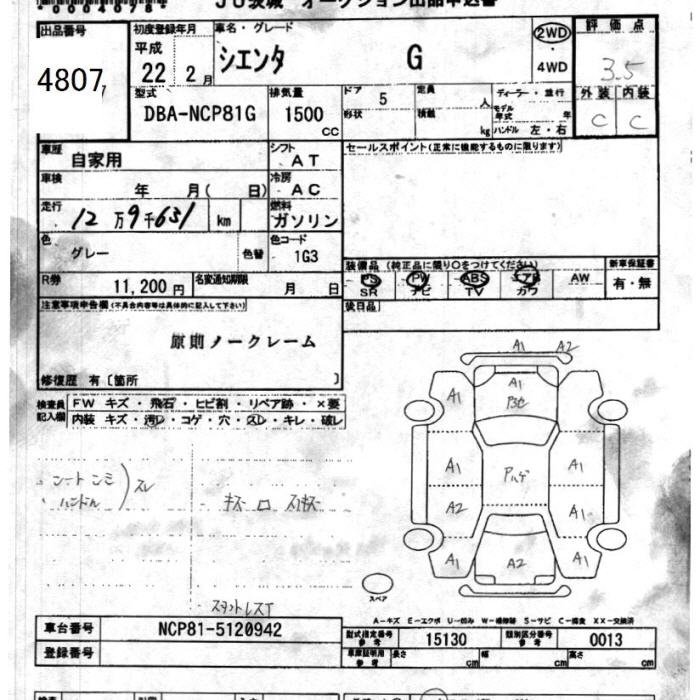 JU茨城 オークション出品申込書
出品番号 初度登録年月 車名・グレード 2WD 評価点
4807 平成 22年 2月 シエンタ G ・4WD 3.5
型式 排気量 ドア 5 定員 人 ディーラー・並行 外装 内装
DBA-NCP81G 1500cc 形状 積載 kg モデル年式 年 ハンドル 左・右 C C
車歴 自家用 シフト AT セールスポイント(正常に機能するものに限ります)
車検 年 月( 日) 冷房 AC
走行 12万9千631 km 燃料 ガソリン
色 グレー 色替 色コード 1G3
R券 11,200円 名変通知期限 月 日
装備品(純正品に限り○をつけてください) 新車保証書
PS PW ABS エアB AW 有・無
SR ナビ TV カワ
注意事項申告欄(不具合内容等は具体的に記入して下さい) 後日品
原則ノークレーム
修復歴 有〔箇所 〕
検査員記入欄 FW キズ・飛石・ヒビ割・リペア跡・×要
内装 キズ・汚レ・コゲ・穴・スレ・キレ・破レ
A1 A2
A1 A1 A1
A1 A1
A2 A1
A1 A2 A1
ハンドル スレ
スペア
A-キズ E-エクボ U-凹み W-補修跡 S-サビ C-腐食 XX-交換済
車台番号 NCP81-5120942 型式指定番号 参考 15130 類別区分番号 参考 0013
登録番号 車庫証明用 参考 長さ cm 幅 cm 高さ cm